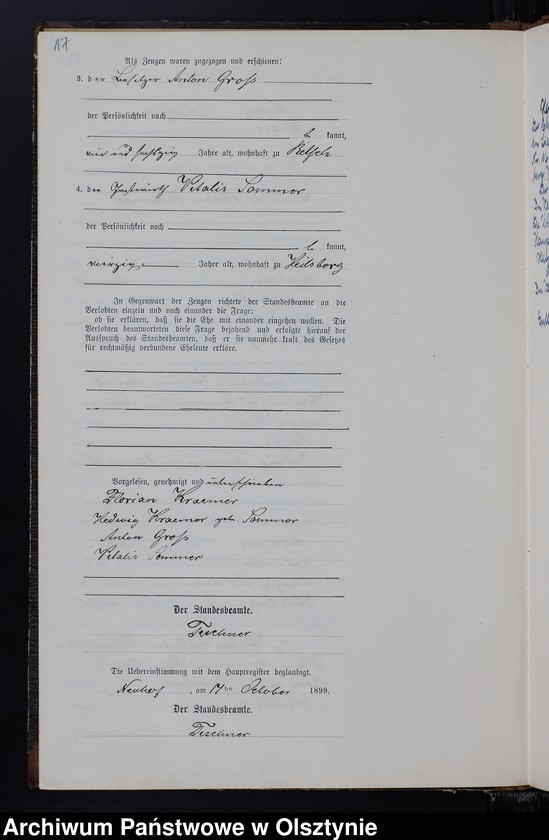 17
Als Zeugen waren zugezogen und erschienen:
3. der Besitzer Anton Groß
der Persönlichkeit nach
be kannt,
vier und sechszig Jahre alt, wohnhaft zu Retsch
4. der Gastwirth Vitalis Sommer
der Persönlichkeit nach
be kannt,
vierzig Jahre alt, wohnhaft zu Heilsberg
In Gegenwart der Zeugen richtete der Standesbeamte an die
Verlobten einzeln und nach einander die Frage:
ob sie erklären, daß sie die Ehe mit einander eingehen wollen. Die
Verlobten beantworteten diese Frage bejahend und erfolgte hierauf der
Ausspruch des Standesbeamten, daß er sie nunmehr kraft des Gesetzes
für rechtmäßig verbundene Eheleute erkläre.
Vorgelesen, genehmigt und unterschrieben
Florian Kraemer
Hedwig Kraemer geb. Sommer
Anton Groß
Vitalis Sommer
Der Standesbeamte.
Teschner
Die Uebereinstimmung mit dem Hauptregister beglaubigt.
Neuhof, am 17ten October 1899.
Der Standesbeamte.
Teschner
Archiwum Państwowe w Olsztynie